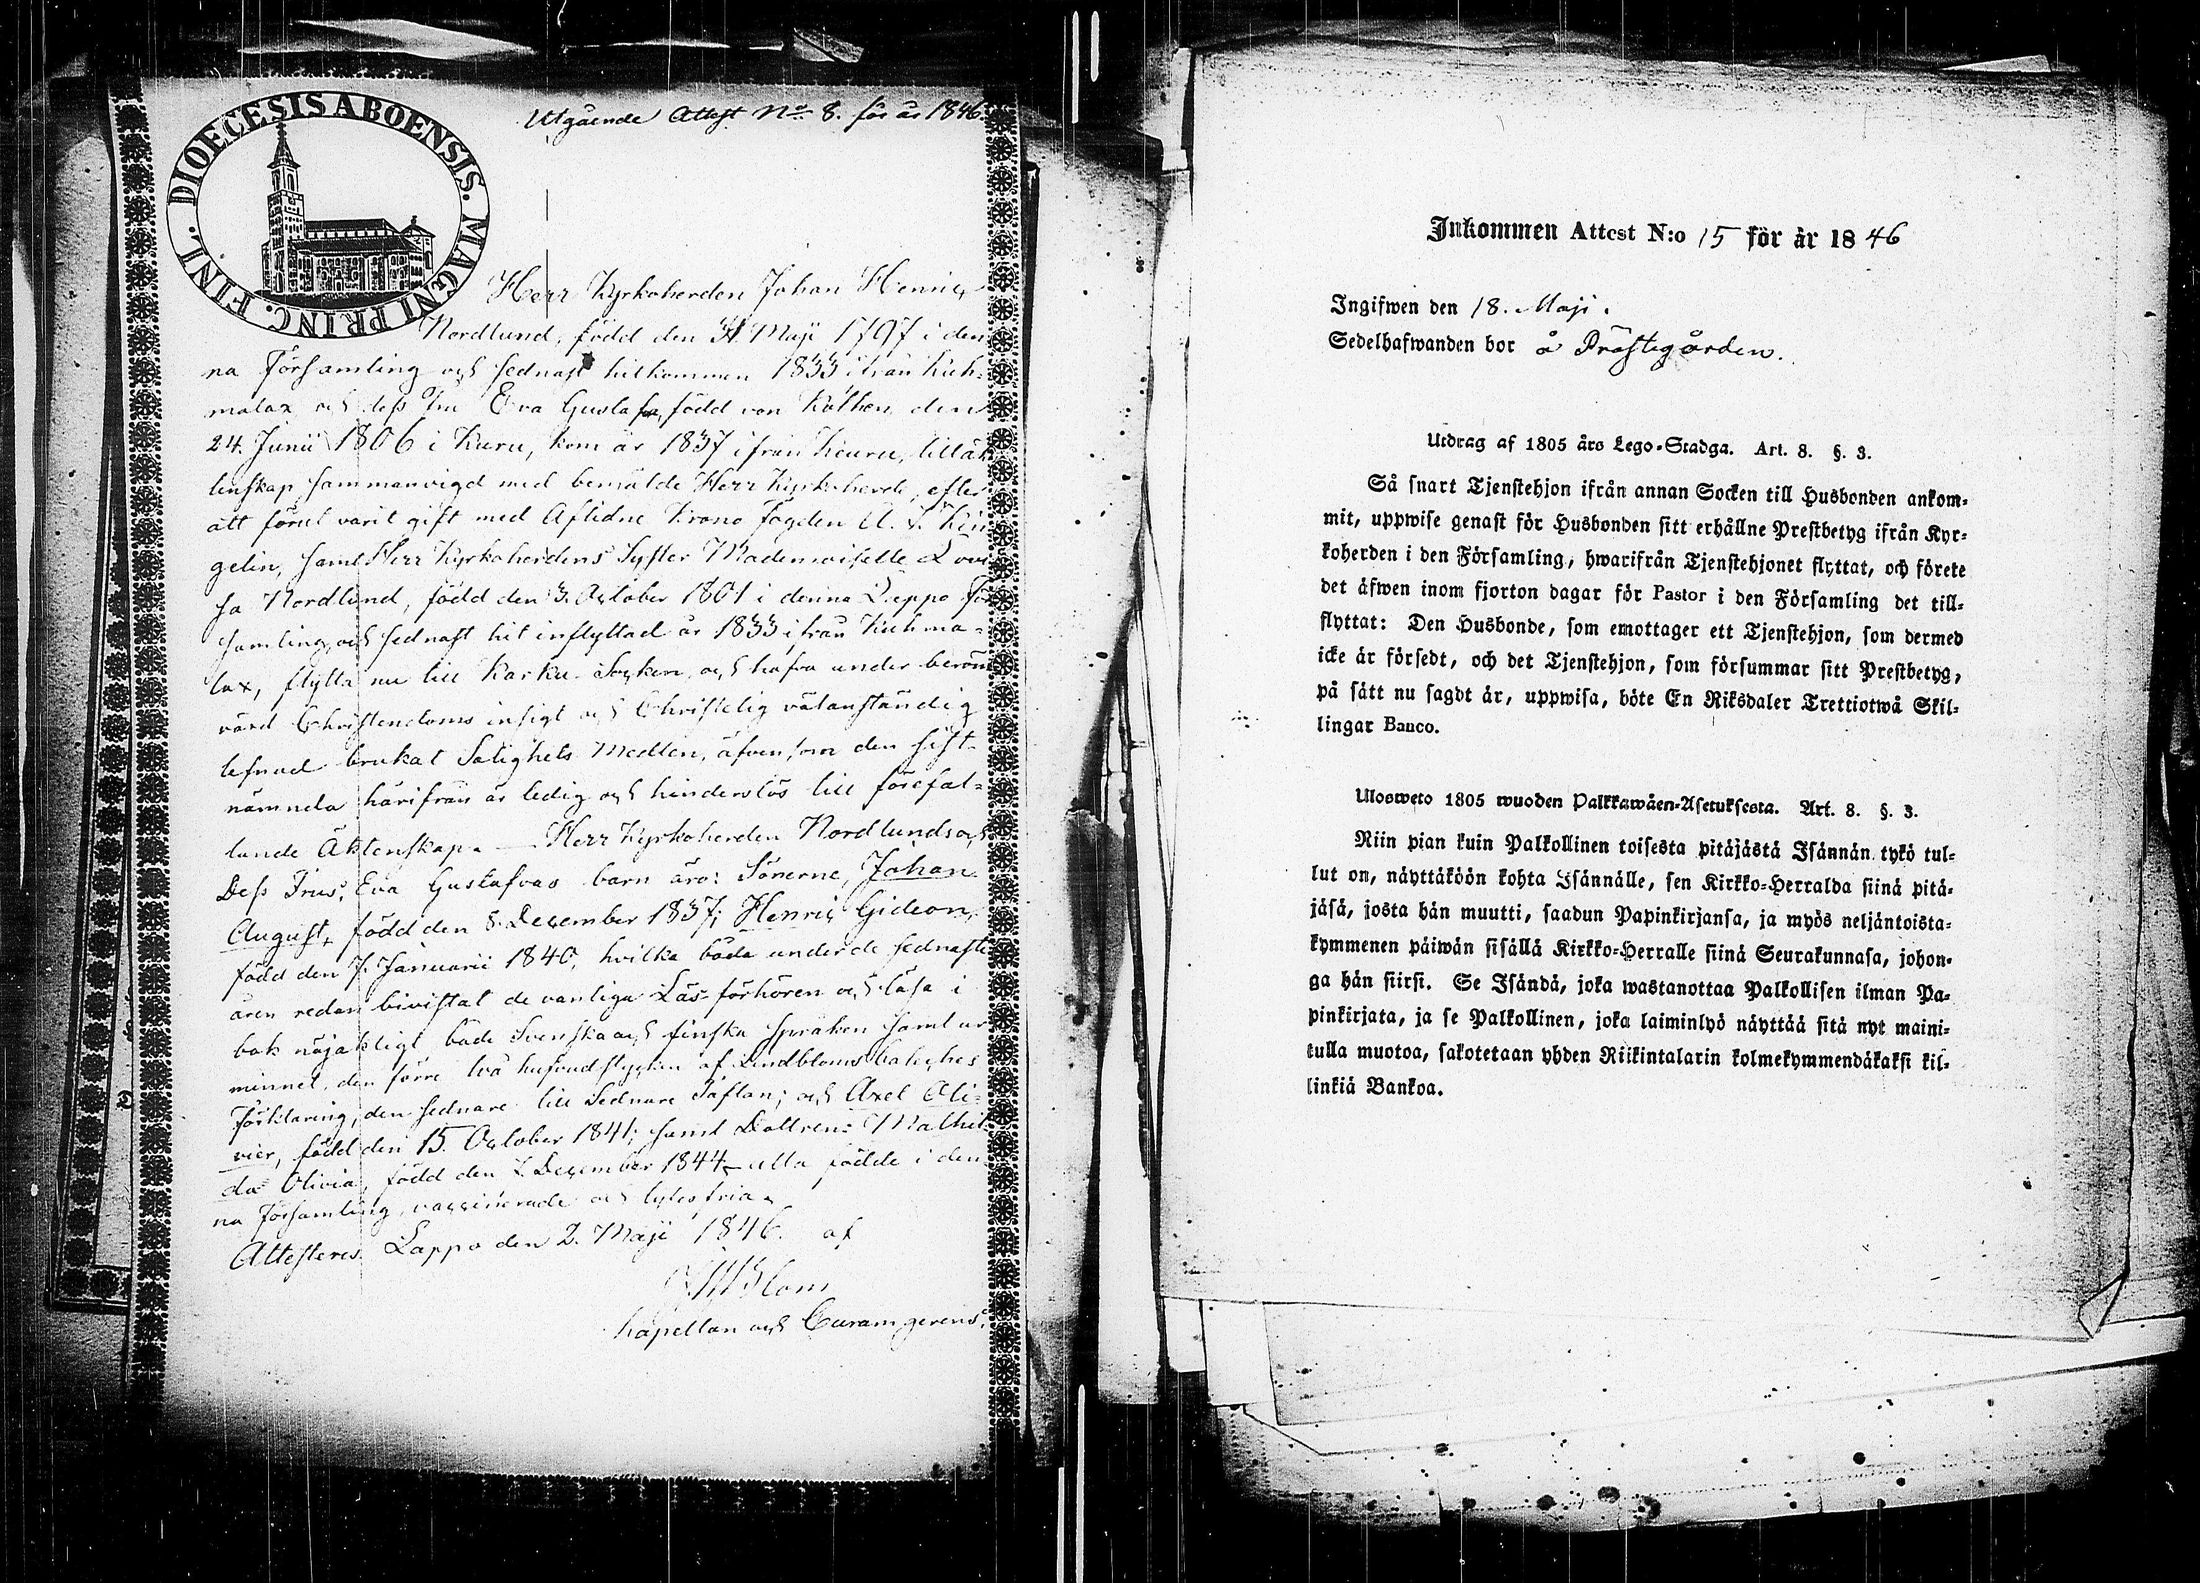 Utgående Attest No 8. för år 1846.
DIOECESIS ABOENSIS. MAGNI PRINC. FINL.
Herr Kyrkoherden Johan Henric
Nordlund, född den Maji 1797 i den
na Församling och sednast hitkommen 1833 ifrån Kuh-
malax och dess Fru Eva Gustafva, född von Köthen den
24. Junii 1806 i Kuru, kom år 1837 ifrån Keuru, till äk
tenskap sammanvigd med bemälde Herr Kyrkoherde, efter
att förut varit gift med Aflidne Krono Fogden
gelin, samt Herr Kyrkoherdens Syster Mademoiselle Lovi
sa Nordlund, född den 3. October 1801 i denna Lappo För
samling och sednast hit inflyttad år 1833 ifrån Kuhma-
lax, flytta nu till Karku Socken, och hafva under beröm
värd Christendoms insigt och Christelig välanständig
lefnad brukat Salighets Medlen, äfven som den sist-
nämnda härifrån är ledig och hinderslös till förefal-
lande Äktenskap. — Herr Kyrkoherden Nordlunds och
Dess Frus, Eva Gustafvas barn äro: Sönerne, Johan
August, född den 8. December 1837; Henric Gideon,
född den 7. Januarii 1840, hvilka båda under de sednaste
åren redan bivistat de vanliga Läs-förhören och läsa i
bok nöjaktligt både Svenska och finska språken samt ur
minnet, den förre två hufvudstycken af Lindbloms Cateches
Förklaring, den sednare till Sednare Taflan; och Axel Oli-
vier, född den 15. October 1841; samt Dottren: Mathil
da Olivia, född den 7. December 1844 — alla födde i den
na Församling, vaccinerade och lytesfria.
Attesteres. Lappo den 2. Maji 1846. af
Blom
Kapellan och Curam gerens.
Inkommen Attest N:o 15 för år 1846
Ingifwen den 18. Maji.
Sedelhafwanden bor å Prästegården.
Utdrag af 1805 års Lego-Stadga. Art. 8. §. 3.
Så snart Tjenstehjon ifrån annan Socken till Husbonden ankom-
mit, uppwise genast för Husbonden sitt erhållne Prestbetyg ifrån Kyr-
koherden i den Församling, hwarifrån Tjenstehjonet flyttat, och förete
det äfwen inom fjorton dagar för Pastor i den Församling det till-
flyttat: Den Husbonde, som emottager ett Tjenstehjon, som dermed
icke är försedt, och det Tjenstehjon, som försummar sitt Prestbetyg,
på sätt nu sagdt är, uppwisa, böte En Riksdaler Trettiotwå Skil-
lingar Banco.
Ulosweto 1805 wuoden Palkkawäen-Asetuksesta. Art. 8. §. 3.
Niin pian kuin Palkollinen toisesta pitäjästä Isännän tykö tul-
lut on, näyttäköön kohta Isännälle, sen Kirkko-Herralda siinä pitä-
jäsä, josta hän muutti, saadun Papinkirjansa, ja myös neljäntoista-
kymmenen päiwän sisällä Kirkko-Herralle siinä Seurakunnasa, johon-
ga hän siirsi. Se Isändä, joka wastanottaa Palkollisen ilman Pa-
pinkirjata, ja se Palkollinen, joka laiminlyö näyttää sitä nyt maini-
tulla muotoa, sakotetaan yhden Riikintalarin kolmekymmendäkaksi kil-
linkiä Bankoa.